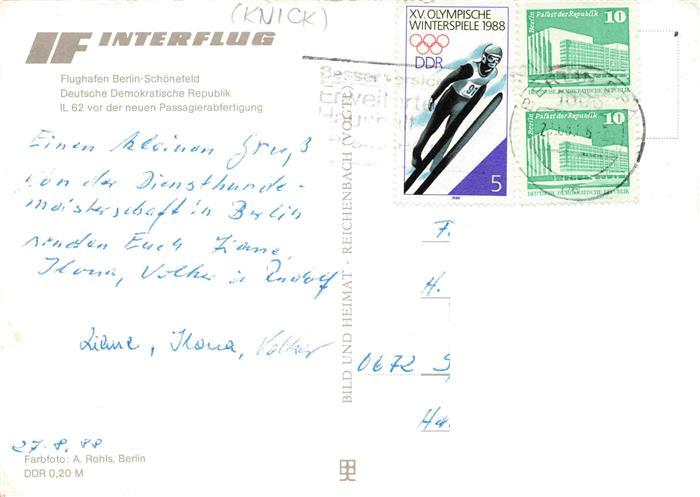 (KNICK)
IF INTERFLUG
Flughafen Berlin-Schönefeld
Deutsche Demokratische Republik
IL 62 vor der neuen Passagierabfertigung
Einen kleinen Gruß
von der Diensthunde-
meisterschaft in Berlin
senden Euch Liane,
Ilona, Volker u Rudolf
Liane, Ilona, Volker
27.8.88
Farbfoto: A. Rohls, Berlin
DDR 0,20 M
BILD UND HEIMAT · REICHENBACH (VOGTL)
XV. OLYMPISCHE
WINTERSPIELE 1988
DDR
5
1988
Berlin Palast der Republik 10
DEUTSCHE DEMOKRATISCHE REPUBLIK
Berlin Palast der Republik 10
DEUTSCHE DEMOKRATISCHE REPUBLIK
Besser
Erweiterte
F.
H.
0672 S
Ha